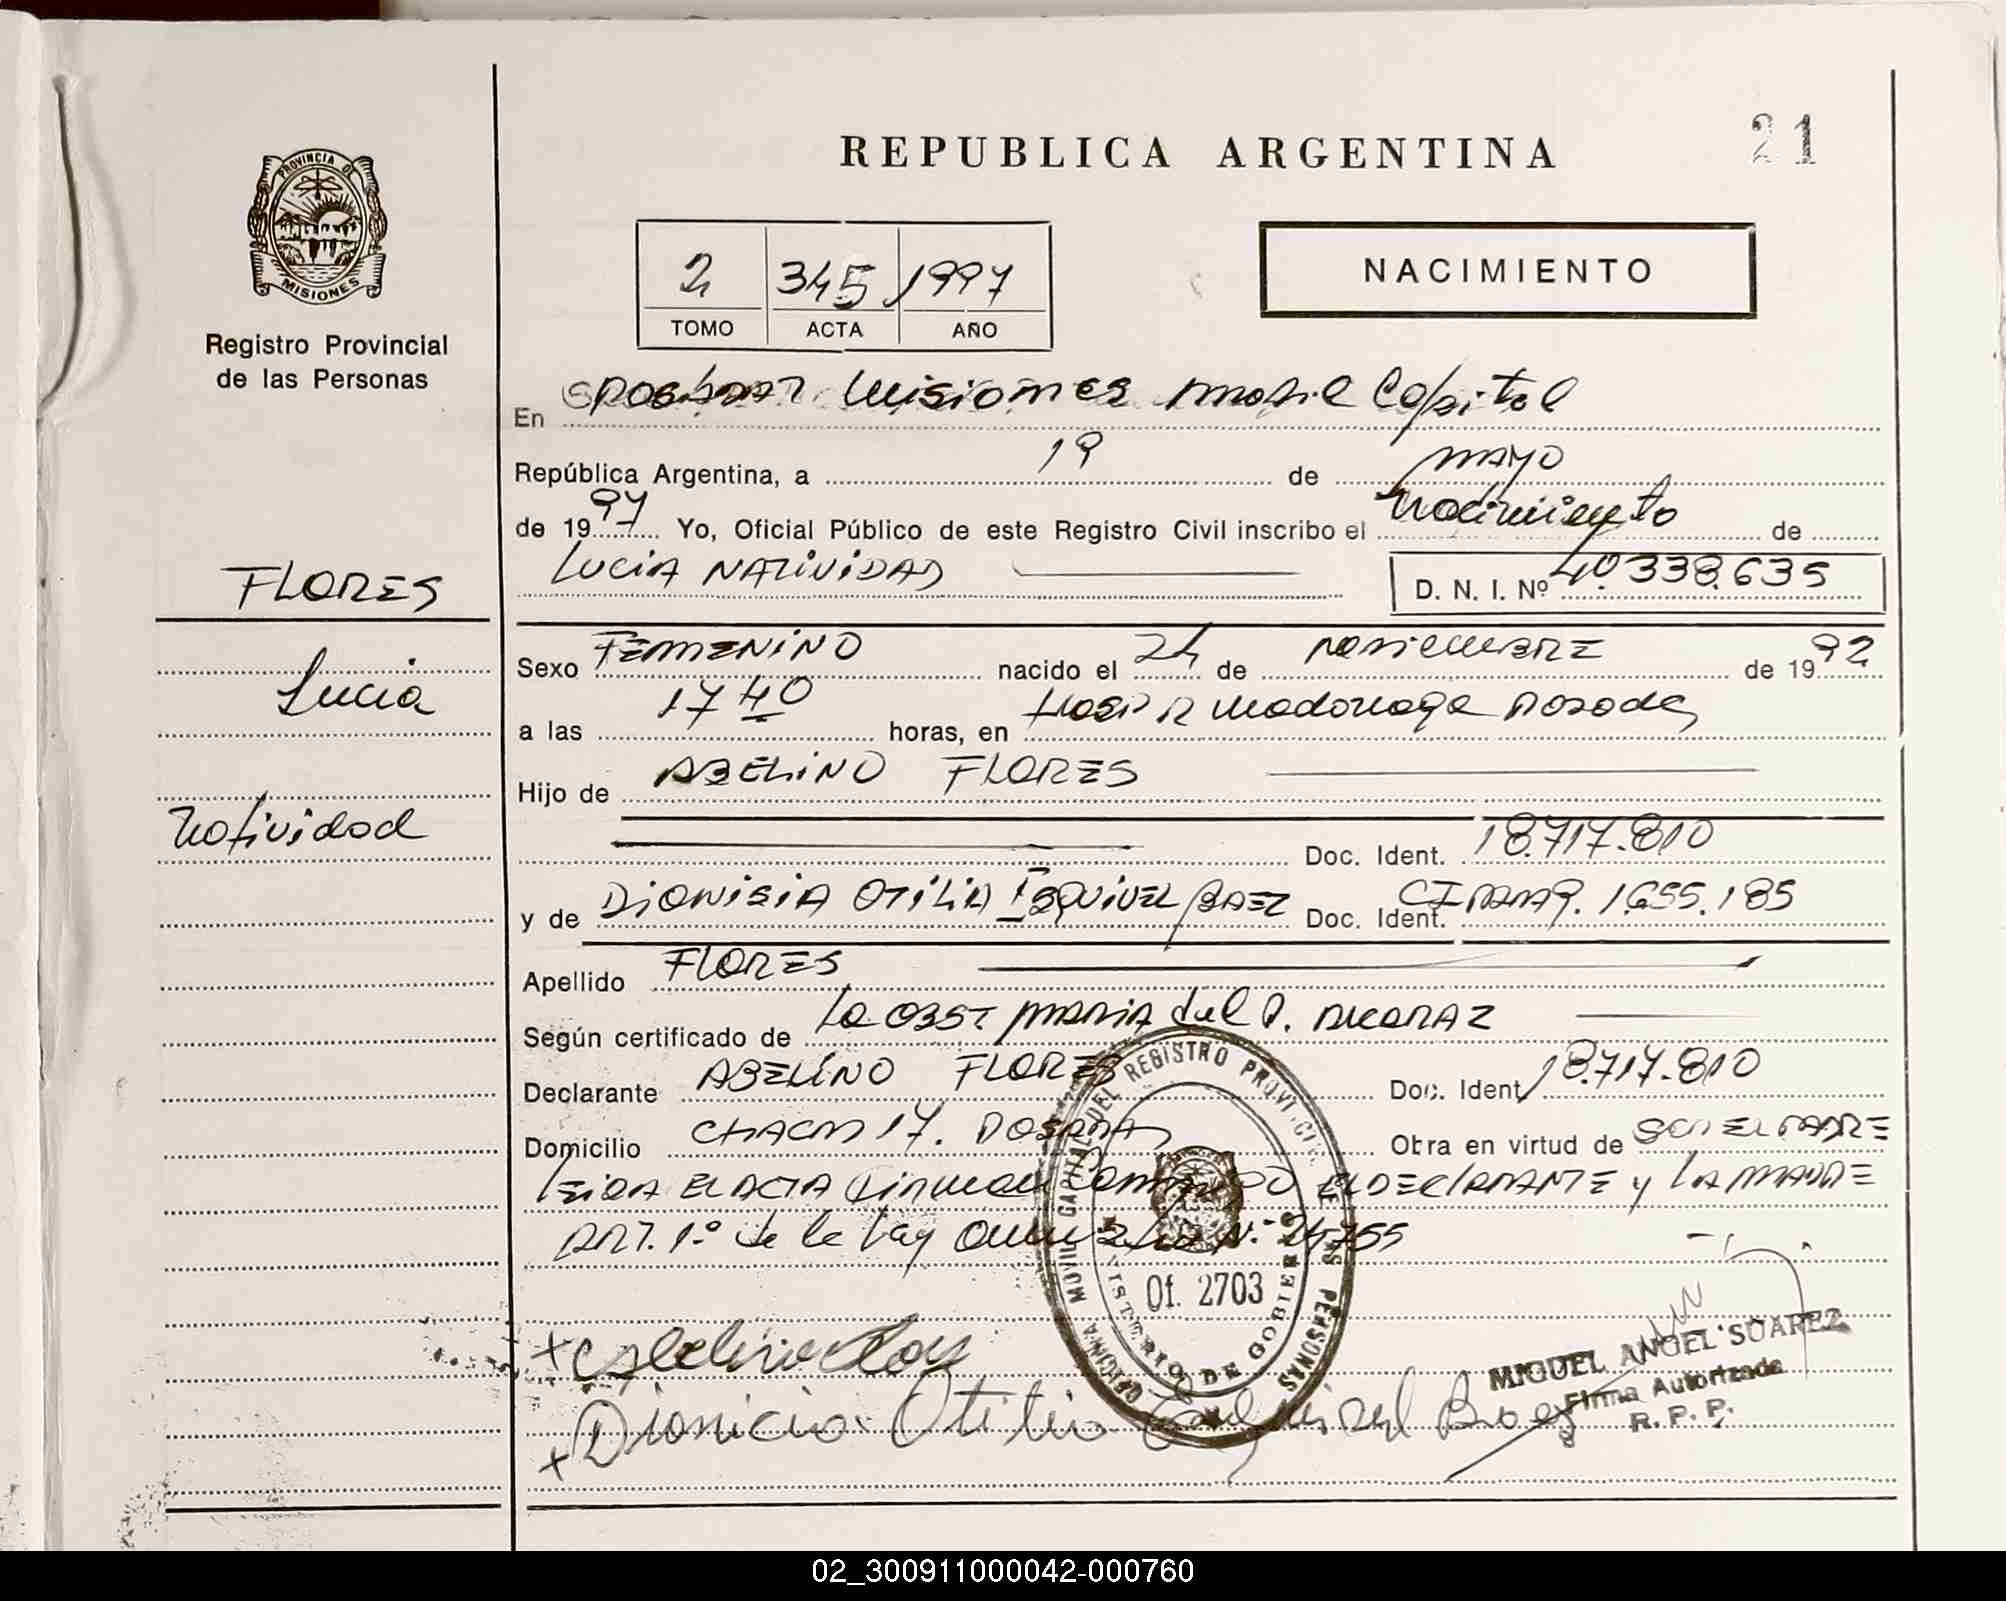 REPUBLICA ARGENTINA
21
PROVINCIA DE
MISIONES
Registro Provincial
de las Personas
2 345 1997
TOMO ACTA AÑO
NACIMIENTO
En Posadas Misiones Movil Capital
República Argentina, a 19 de mayo
de 1997 Yo, Oficial Público de este Registro Civil inscribo el Nacimiento de
LUCIA NATIVIDAD D. N. I. Nº 40.338.635
FLORES
Lucia
Natividad
Sexo FEMENINO nacido el 24 de noviembre de 1992
a las 17 40 horas, en Hosp R Madariaga Posadas
Hijo de ABELINO FLORES
Doc. Ident. 18.717.810
y de DIONISIA OTILIA ESQUIVEL BAEZ Doc. Ident. CI 1.655.185
Apellido FLORES
Según certificado de La OBST MARIA del ALCARAZ
Declarante ABELINO FLORES Doc. Ident. 18.717.810
Domicilio CHACRA 17. POSADAS Obra en virtud de SER EL PADRE
LEIDA EL ACTA Firman Conmigo EL DECLARANTE y LA MADRE
ART. 1º de la Ley Nº 24755
OFICINA MOVIL CAPITAL DEL REGISTRO PROVINCIAL DE LAS PERSONAS
MINISTERIO DE GOBIERNO
Of. 2703
MIGUEL ANGEL SUAREZ
Firma Autorizada
R. P. P.
x
x Dionicia Otilia Esquivel Baez
02_300911000042-000760